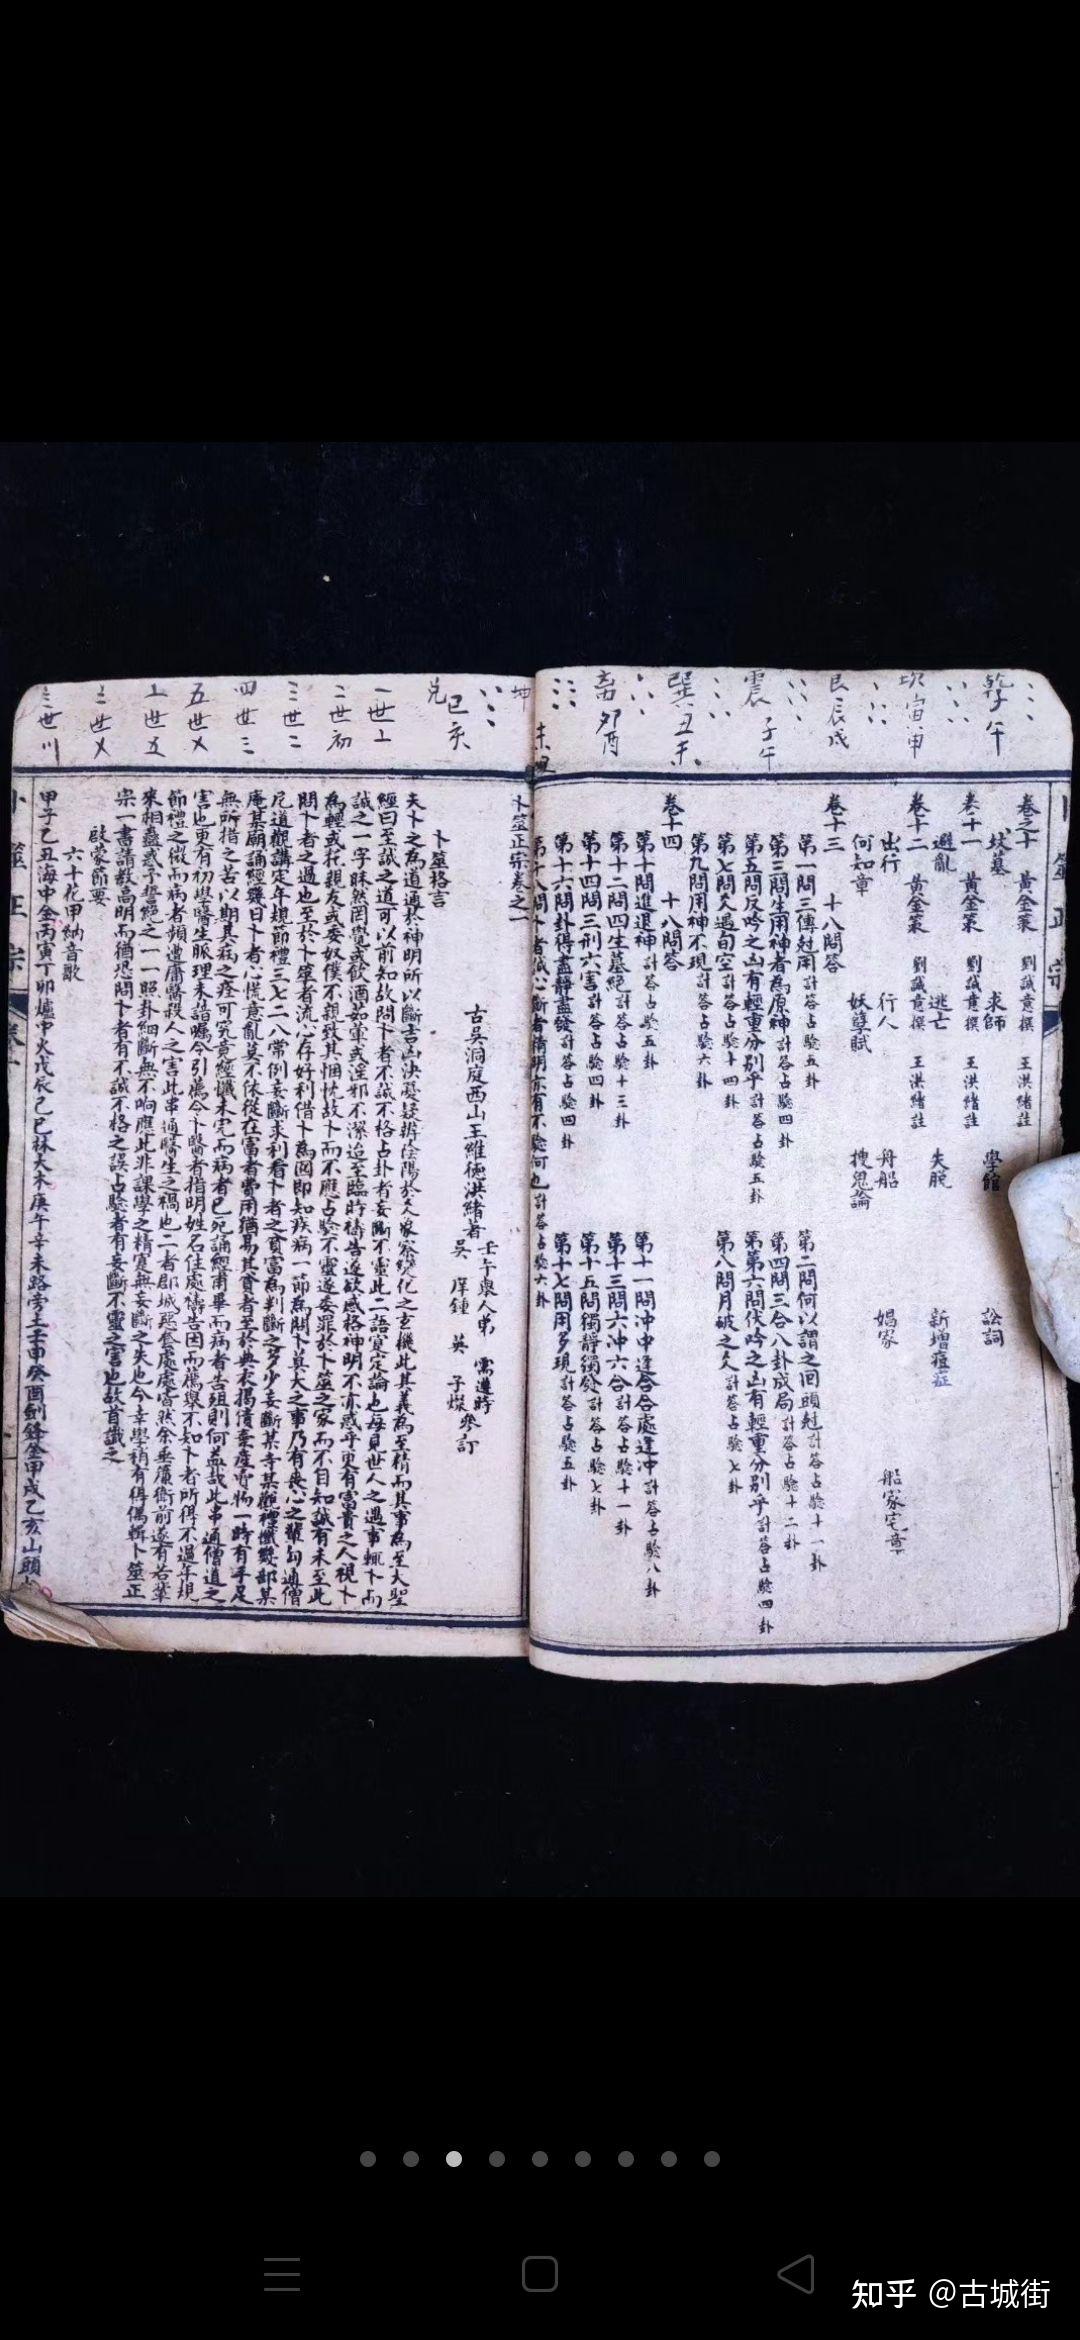 乾 子午
坎 寅申
艮 辰戌
震 子午
巽 丑未
離 卯酉
坤 未丑
兌 巳亥
一世上
二世初
三世二
四世三
五世乂
上世五
卷之十 黃金策 劉誠意撰 王洪緒註
坟墓 求師 學館 訟詞
卷十一 黃金策 劉誠意撰 王洪緒註
避亂 逃亡 失脫 新增痘症
卷十二 黃金策 劉誠意撰 王洪緒註
出行 行人 舟船 娼家 船家宅章
何知章 妖孽賦 搜鬼論
卷十三 十八問答
第一問三傳尅用計答占驗五卦 第二問何以謂之回頭尅計答占驗十一卦
第三問生用神者為原神計答占驗四卦 第四問三合八卦成局計答占驗十二卦
第五問反吟之凶有輕重分別乎計答占驗五卦 第六問伏吟之凶有輕重分別乎計答占驗四卦
第七問爻遇旬空計答占驗十四卦 第八問月破之爻計答占驗七卦
第九問用神不現計答占驗六卦
卷十四 十八問答
第十問進退神計答占驗五卦 第十一問冲中逢合合處逢冲計答占驗八卦
第十二問四生墓絕計答占驗十三卦 第十三問六冲六合計答占驗十一卦
第十四問三刑六害計答占驗四卦 第十五問獨靜獨發計答占驗七卦
第十六問卦得盡靜盡發計答占驗四卦 第十七問用多現計答占驗五卦
第十八問卜者誠心斷者精明亦有不驗何也計答占驗六卦
卜筮正宗卷之一
古吳洞庭西山王維德洪緒著 壬午舉人弟 需遵時 吳 庠鍾 英 子燦參訂
卜筮格言
夫卜之為道通於神明所以斷吉凶決憂疑辨陰陽於爻象察變化之玄機此其義為至精而其事為至大聖
經曰至誠之道可以前知故問卜者不誠不格占卦者妄斷不靈此二語寔定論也每見世人之遇事輒卜而
誠之一字昧然罔覺或飲酒茹葷或淫邪不潔迨至臨時禱告遂欲感格神明不亦惑乎更有富貴之人視卜
為輕或托親友或委奴僕不親致其悃忱故卜而不應占驗不靈遂委罪於卜筮之家而不自知誠有未至此
問卜者之過也至於卜筮者流心存好利借卜為囮即知疾病一節為問卜莫大之事乃有喪心之輩勾通僧
尼道觀講定年規節禮三七二八常例妄斷求利看卜者之貧富為判斷之多少妄斷某寺某觀禮懺幾部某
庵某廟誦經幾日卜者心慌意亂莫不依從在富者費用猶易其貧者至於典衣揭債棄產賣物一時有手足
無所措之苦以期其病之痊可究竟經懺未完而病者已死誦經甫畢而病者告殂則何益哉此串通僧道之
害也更有初學醫生脈理未諳囑令引薦令卜醫者指明姓名住處禱告因而薦舉不知卜者所得不過年規
節禮之微而病者頻遭庸醫殺人之害此串通醫生之禍也二者郡城惡套處處皆然余垂簾衛前遂有若輩
來相蠱惑予誓絕之一一照卦細斷無不响應此非課學之精寔無妄斷之失也今幸學稍有得偶輯卜筮正
宗一書請教高明而猶恐問卜者有不誠不格之誤占驗者有妄斷不靈之害也故首識之
啟蒙節要
六十花甲納音歌
甲子乙丑海中金丙寅丁卯爐中火戊辰己巳林大木庚午辛未路旁土壬申癸酉劍鋒金甲戌乙亥山頭
卜筮正宗
知乎 @古城街